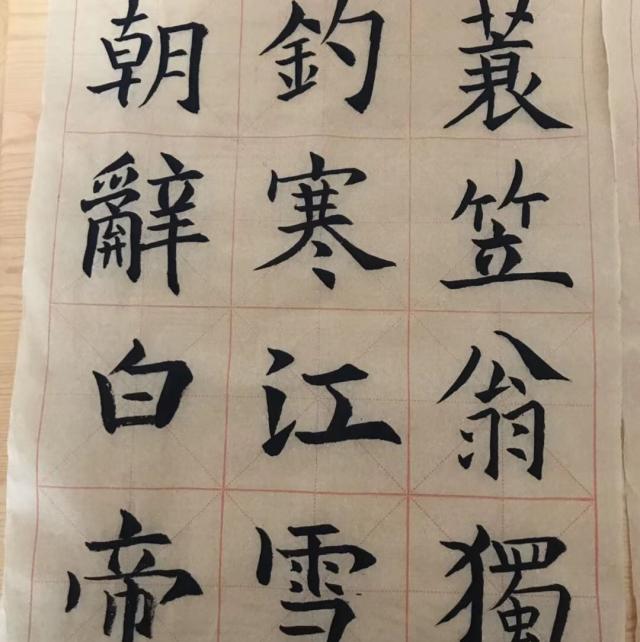 蓑笠翁獨
釣寒江雪
朝辭白帝